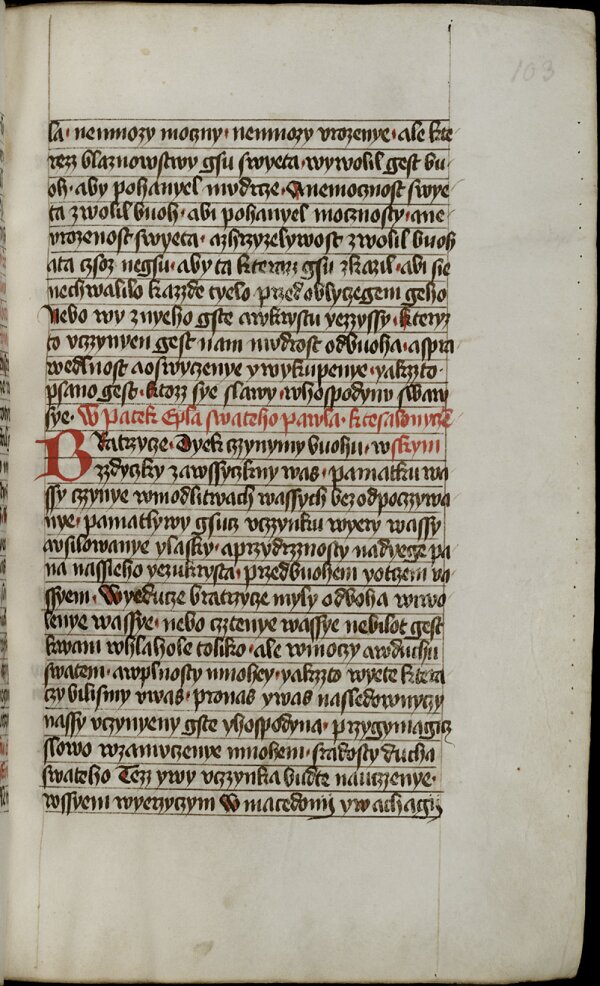 103
la · nemnozy moczny · nemnozy vrozenye · ale kte
rezz blaznowstwy gsu swyeta · wywolil gest bu
oh · aby pohanyel mudrcze · Anemocznost swye
ta zwolil buoh · abi pohanyel mocznosty · ane
vrozenost swyeta · azhrzyzelywost zwolil buoh
ata czsoz negsu · aby ta kterazz gsu zkazil · abi sie
nechwalilo kazzde tyelo przed oblyczegem geho
Nebo wy znyeho gste awkrystu yezzyssy · kteryz
to vczynyen gest nam mudrost odbuoha · aspra
wedlnost aoswyczenye ywykupenye · yakzzto ·
psano gest · ktozz sye slawy · whospodynu slaw
sye · W patek Epla swateho pawla · ktesalonycze
BRatrzycze · Dyek czynymy buohu · wskym
zzdyczky zawssyczkny was · pamatku wa
ssy czynye wmodlitwach wassych bezodpoczywa
nye · pamatlywy gsucz vczynku wyery wassy
ausilowanye ylasky · aprzydrznosty nadyege pa
na nassieho yezukrysta · przedbuohem yotczem va
ssyem · Wyeducze bratrzycze myly odboha wywo
lenye wassye · nebo cztenye wassye nebilot gest
kwam whlahole toliko · ale wmoczy awduchu
swatem · awplnosty mnohey · yakzzto wyete ktera
czy bilismy vwas · pronas ywas nasledownyczy
nassy vczynyeny gste yhospodyna · przygymagicz
slowo wzamuczenye mnohem · sradosty ducha
swateho Tezz ywy vczynka budte nauczenye ·
wssyem wyerzyczym W macedonij ywachagij